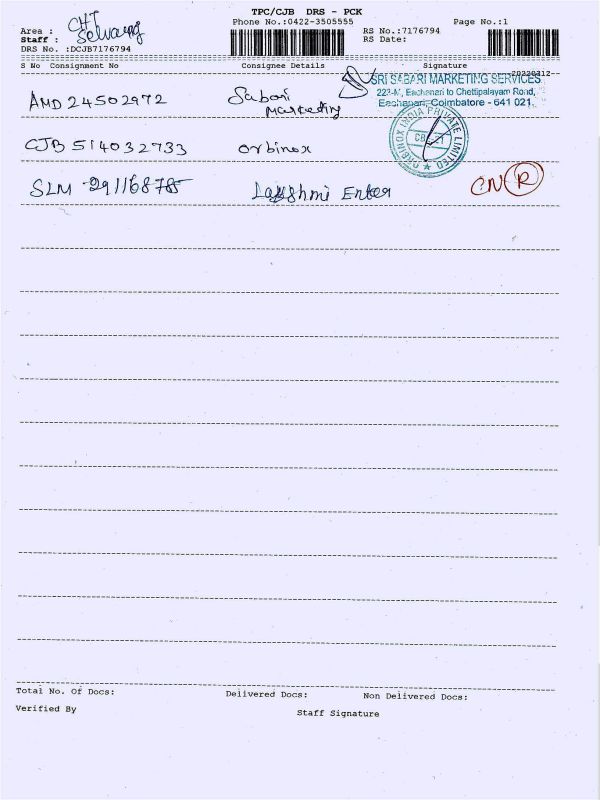 TPC/CJB DRS - PCK
Area : CHT
Phone No.:0422-3505555
Page No.:1
Staff : Selvaraj
RS No.:7176794
DRS No. :DCJB7176794
RS Date:
20220312--
S No Consignment No Consignee Details Signature
AMD 24502972 Sabari Marketing
SRI SABARI MARKETING SERVICES
223-M, Eachanari to Chettipalayam Road,
Eachanari, Coimbatore - 641 021.
CJB 514032733 Orbinox
ORBINOX INDIA PRIVATE LIMITED
SLM 291168785 Lakshmi Enter CN R
Total No. Of Docs: Delivered Docs: Non Delivered Docs:
Verified By Staff Signature